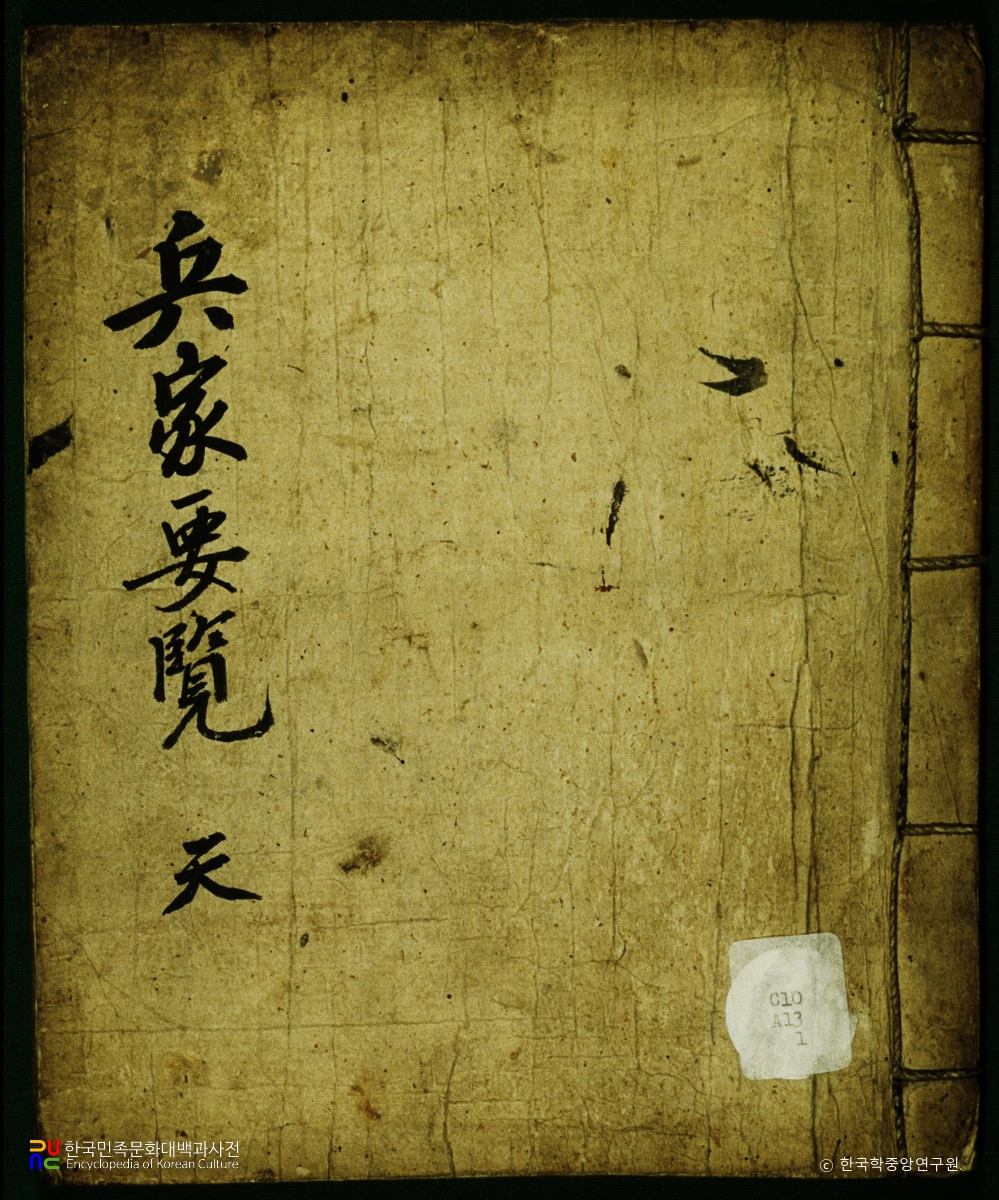 兵家要覽 天
C10
A13
1
한국민족문화대백과사전
Encyclopedia of Korean Culture
© 한국학중앙연구원